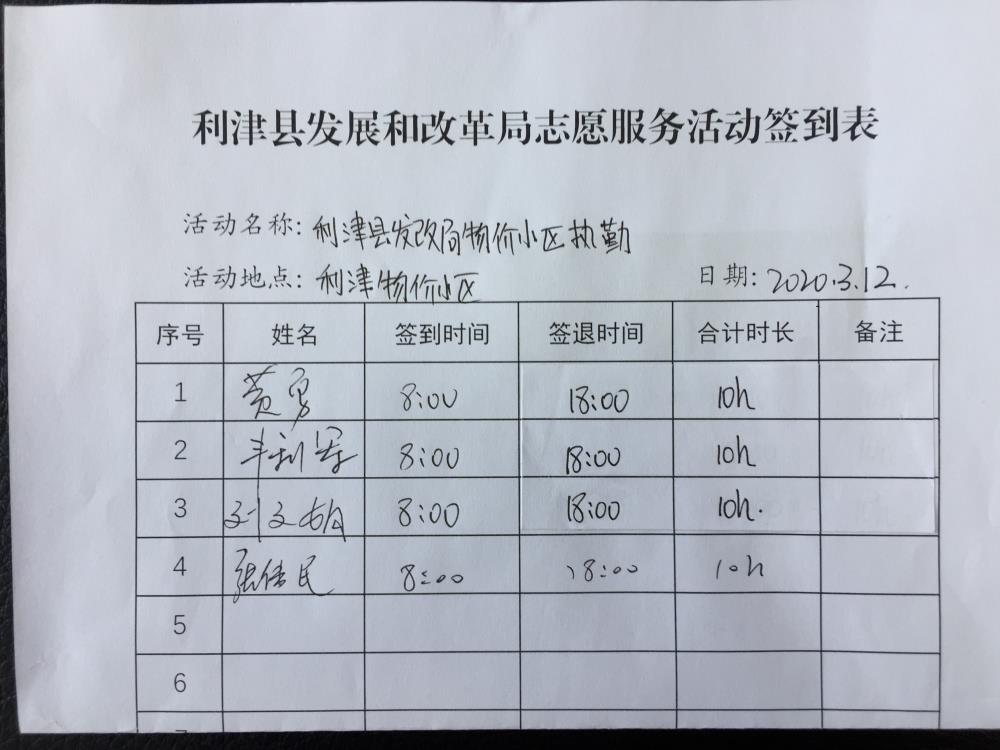 利津县发展和改革局志愿服务活动签到表
活动名称: 利津县发改局物价小区执勤
活动地点: 利津物价小区 日期: 2020.3.12.
序号 姓名 签到时间 签退时间 合计时长 备注
1 黄勇 8:00 18:00 10h
2 丰利军 8:00 18:00 10h
3 刘文娟 8:00 18:00 10h.
4 8:00 18:00 10h
5
6